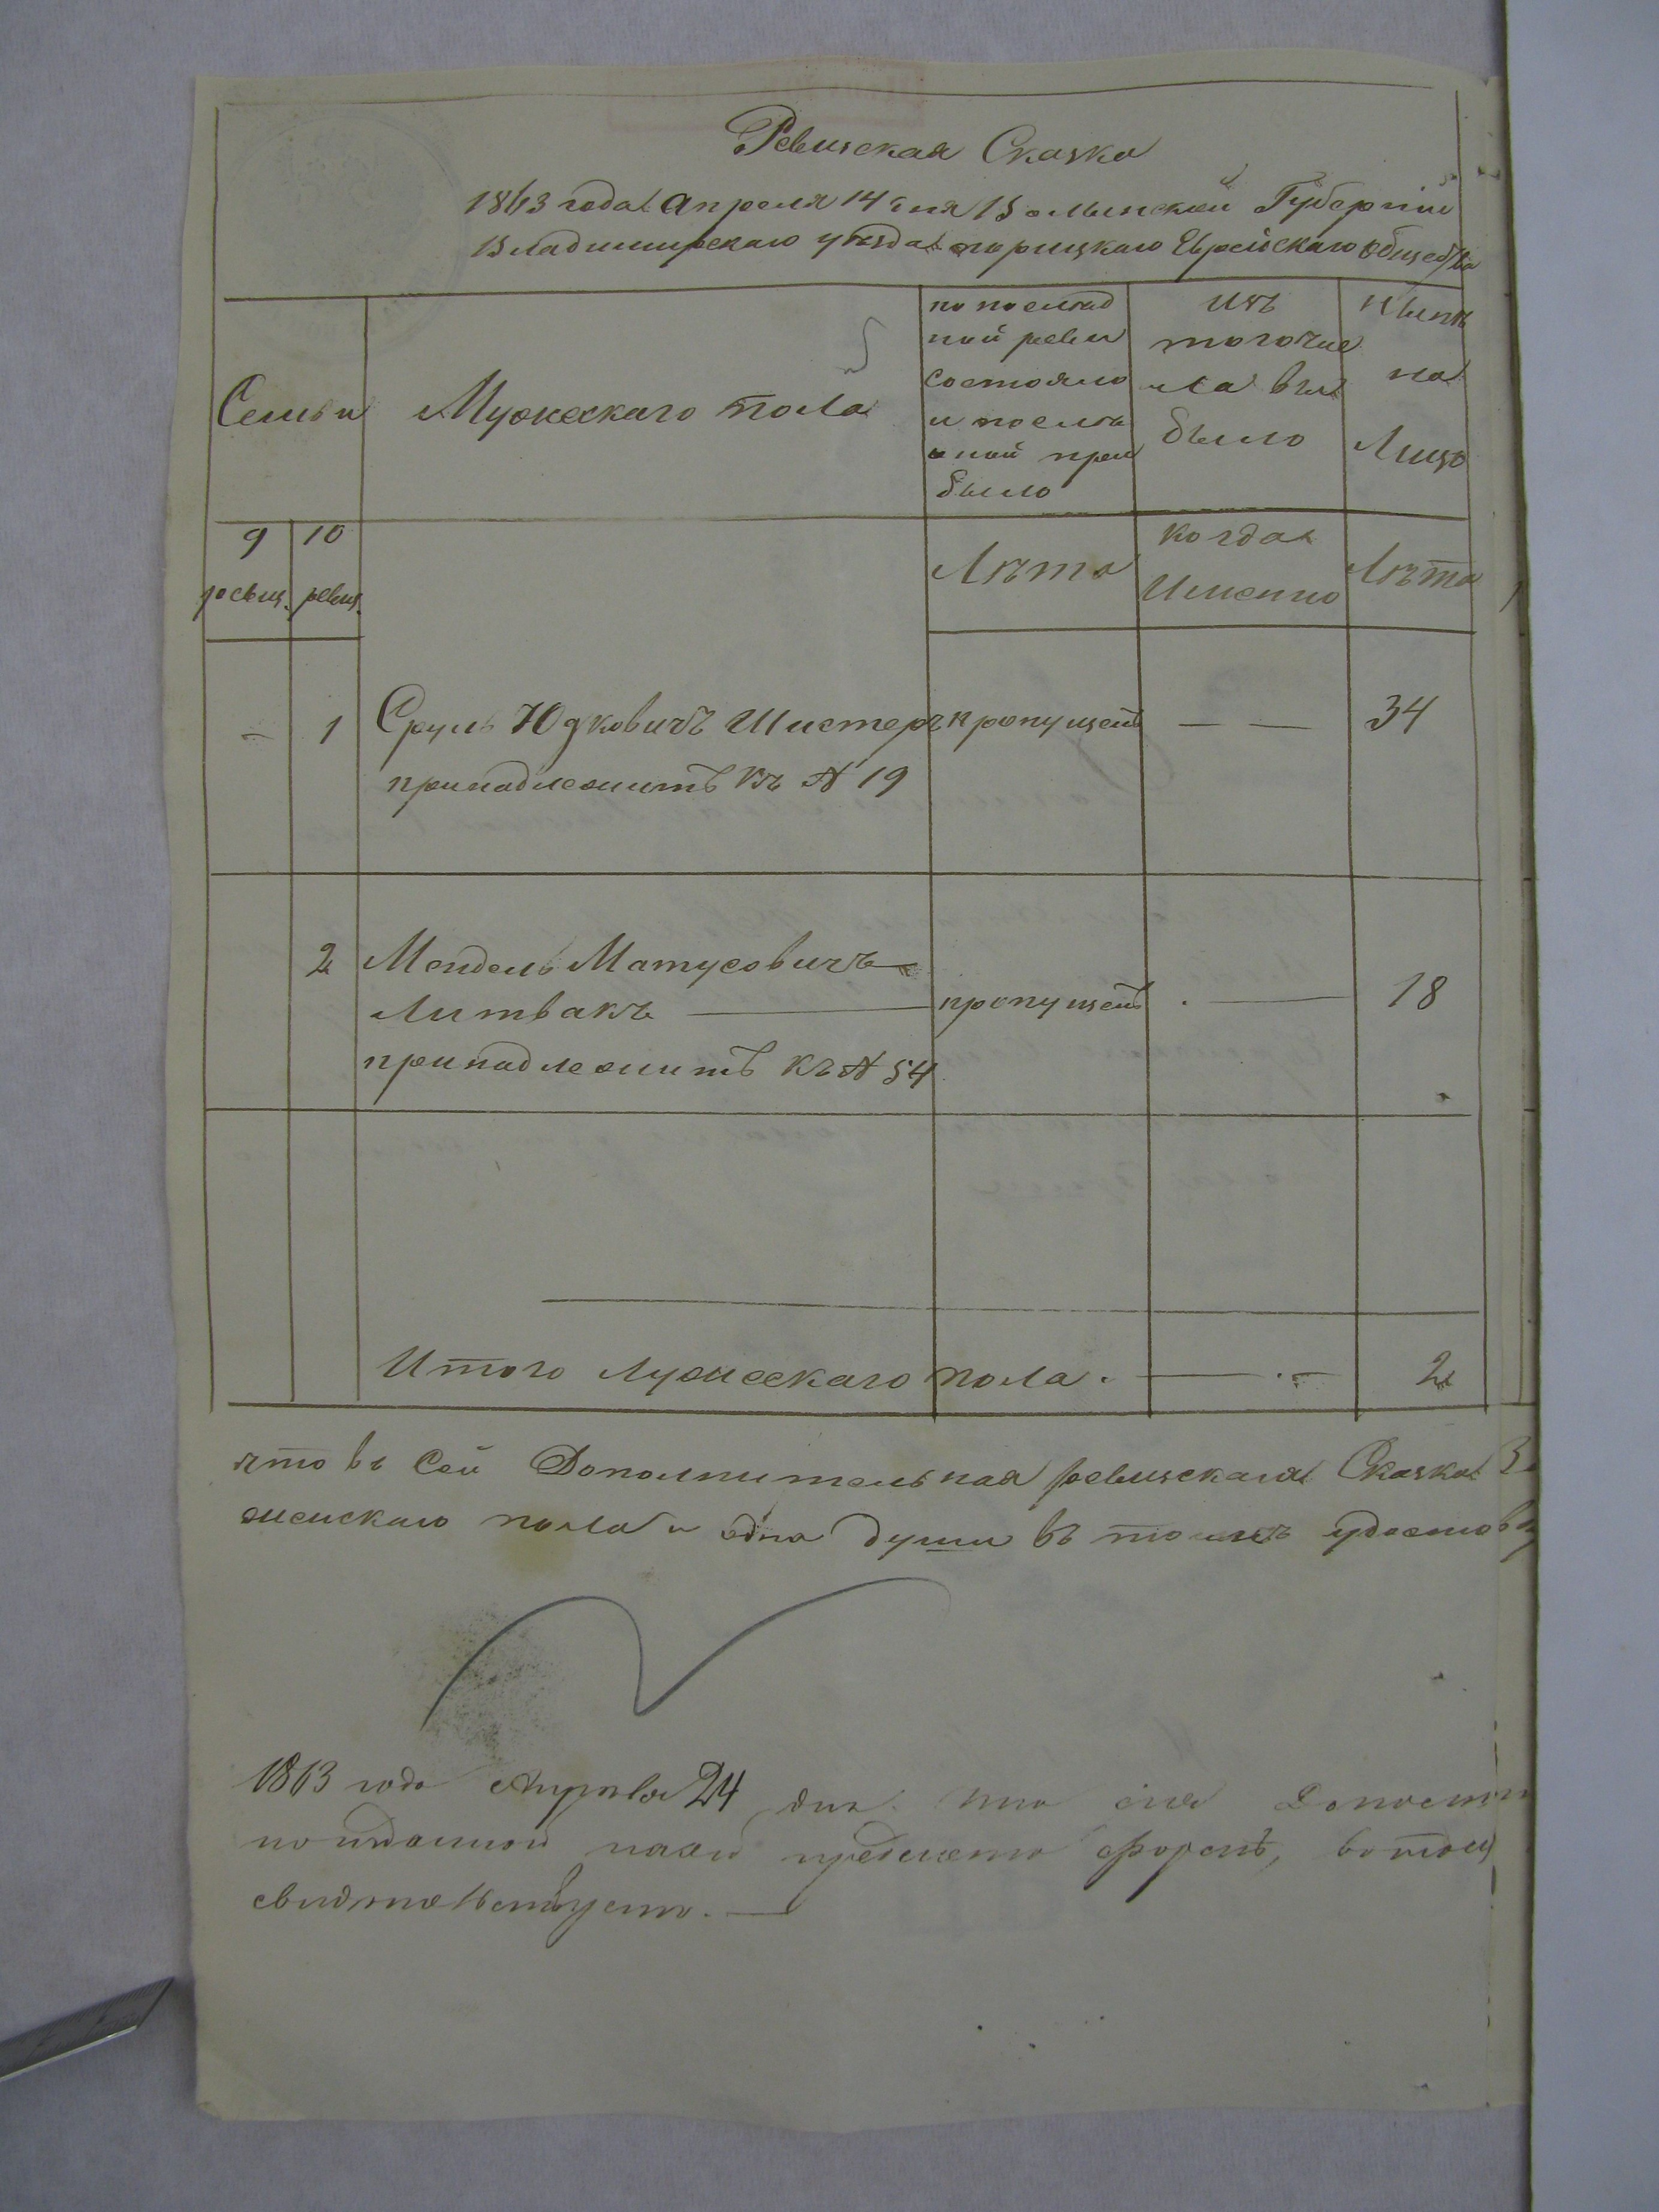 Ревизская Сказка
1863 года Апреля 14 дня Волынской Губерніи
Владимирскаго уѣзда порицкаго Еврейскаго Общества
Семьи
Мужескаго пола
по послѣд
ной реви
состояло
и послѣ
оной при
было
изъ
того чис
ла вы
было
Нынѣ
на
Лицо
9 10
ревиз. ревиз.
Лѣта
когда
Именно
Лѣта
1 Сруль Юдковичъ Шистеръ пропущенъ — — 34
принадлежитъ къ № 19
2 Мендель Матусовичъ
Литвакъ — пропущенъ — 18
принадлежитъ къ № 54
Итого Мужескаго пола. — 2
что въ сей Дополнительная ревизская Сказка
женскаго пола одна души въ томъ удостов
1863 года Апрѣля 24 дня что сія
по формѣ, въ томъ
свидѣтельствуетъ. —